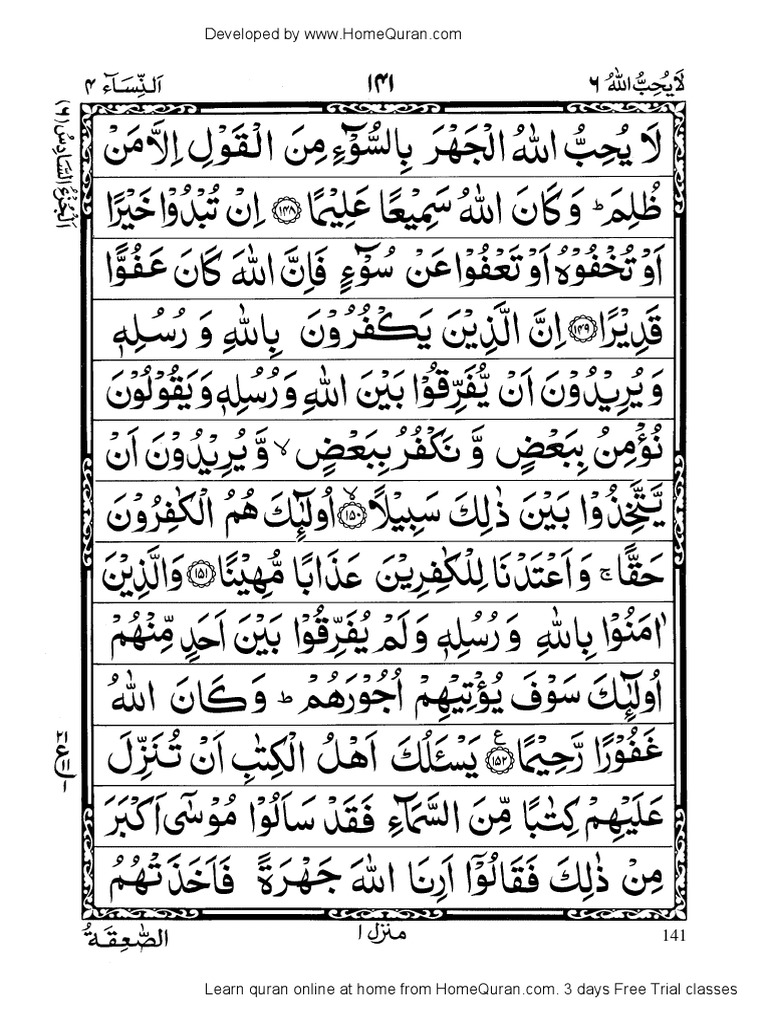 Developed by www.HomeQuran.com
لَا يُحِبُّ اللهُ ٦ ١٤١ اَلنِّسَآء ٤
اَلْجُزْءُ السَّادِسُ (٦)
لَا يُحِبُّ اللهُ الْجَهْرَ بِالسُّوْٓءِ مِنَ الْقَوْلِ اِلَّا مَنْ
ظُلِمَ ؕ وَ كَانَ اللهُ سَمِيْعًا عَلِيْمًا ﴿١٤٨﴾ اِنْ تُبْدُوْا خَيْرًا
اَوْ تُخْفُوْهُ اَوْ تَعْفُوْا عَنْ سُوْٓءٍ فَاِنَّ اللهَ كَانَ عَفُوًّا
قَدِيْرًا ﴿١٤٩﴾ اِنَّ الَّذِيْنَ يَكْفُرُوْنَ بِاللهِ وَ رُسُلِهٖ
وَ يُرِيْدُوْنَ اَنْ يُّفَرِّقُوْا بَيْنَ اللهِ وَ رُسُلِهٖ وَ يَقُوْلُوْنَ
نُؤْمِنُ بِبَعْضٍ وَّ نَكْفُرُ بِبَعْضٍ ۙ وَّ يُرِيْدُوْنَ اَنْ
يَّتَّخِذُوْا بَيْنَ ذٰلِكَ سَبِيْلًا ﴿١٥٠﴾ ۙ اُولٰٓئِكَ هُمُ الْكٰفِرُوْنَ
حَقًّا ۚ وَ اَعْتَدْنَا لِلْكٰفِرِيْنَ عَذَابًا مُّهِيْنًا ﴿١٥١﴾ وَالَّذِيْنَ
اٰمَنُوْا بِاللهِ وَ رُسُلِهٖ وَ لَمْ يُفَرِّقُوْا بَيْنَ اَحَدٍ مِّنْهُمْ
اُولٰٓئِكَ سَوْفَ يُؤْتِيْهِمْ اُجُوْرَهُمْ ؕ وَ كَانَ اللهُ
غَفُوْرًا رَّحِيْمًا ﴿١٥٢﴾ ع يَسْـَٔلُكَ اَهْلُ الْكِتٰبِ اَنْ تُنَزِّلَ
عَلَيْهِمْ كِتٰبًا مِّنَ السَّمَآءِ فَقَدْ سَاَلُوْا مُوْسٰٓى اَكْبَرَ
مِنْ ذٰلِكَ فَقَالُوْٓا اَرِنَا اللهَ جَهْرَةً فَاَخَذَتْهُمُ
الصّٰعِقَةُ منزل ١ 141
Learn quran online at home from HomeQuran.com. 3 days Free Trial classes